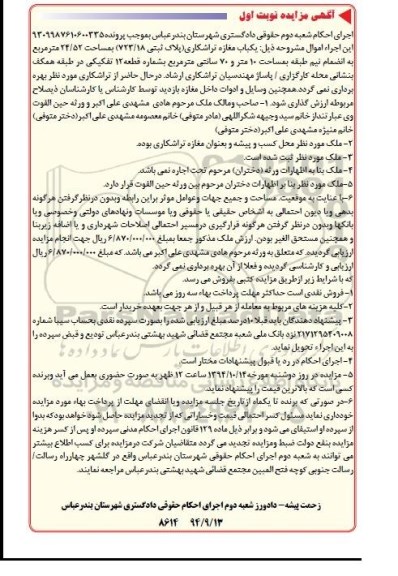 آگهی مزایده نوبت اول
اجرای احکام شعبه دوم حقوقی دادگستری شهرستان بندرعباس بموجب پرونده
این اجراء اموال مشروحه ذیل: یکباب مغازه تراشکاری(پلاک ثبتی ۷۲۳/۱۸) بمساحت ۲۴/۵۲ مترمربع
به انضمام نیم طبقه بمساحت ۱۰ متر و ۷۰ سانتی مترمربع بشماره قطعه۱۲ تفکیکی در طبقه همکف
بنشانی محله کارگزاری / پاساژ مهندسیان تراشکاری ارشاد. درحال حاضر از تراشکاری مورد نظر بهره
برداری نمی گردد.همچنین وسایل و ادوات داخل مغازه بازدید توسط کارشناس یا کارشناسان ذیصلاح
مربوطه ارزش گذاری شود. ۱- صاحب ومالک ملک مرحوم هادی مشهدی علی اکبر و ورثه حین الفوت
وی عبارتنداز خانم سید وجیهه شکراللهی (مادر متوفی) خانم معصومه مشهدی علی اکبر(دختر متوفی)
خانم منیژه مشهدی علی اکبر(دختر متوفی)
۲- ملک مورد نظر محل کسب و پیشه و بعنوان مغازه تراشکاری بوده.
۳- ملک مورد نظر ثبت شده است.
۴- ملک بنا به اظهارات ورثه (دختران) مرحوم تحت اجاره نمی باشد.
۵- ملک مورد نظر بنا بر اظهارات دختران مرحوم بین ورثه حین الفوت قرار دارد.
۶- با عنایت به موقعیت، مساحت و جمیع جهات وعوامل موثر براین رابطه وبدون درنظرگرفتن هرگونه
بدهی ویا دیون احتمالی به اشخاص حقیقی یا حقوقی ویا موسسات ونهادهای دولتی وخصوصی ویا
بانکها وبدون درنظر گرفتن هرگونه قرارگیری درمسیر احتمالی اصلاحات شهرداری و یا اضافه زیربنا
و همچنین مستحق الغیر بودن، ارزش ملک مذکور جمعا بمبلغ ۶/۸۷۰/۰۰۰/۰۰۰ ریال جهت انجام مزایده
ارزیابی گردیده که متعلق به ورثه مرحوم هادی مشهدی علی اکبر می باشد. که مبلغ ۶/۸۷۰/۰۰۰/۰۰۰ ریال
ارزیابی و کارشناسی گردیده و فعلا از آن بهره برداری نمی گردد.
که با شرایط زیر ازطریق مزایده کتبی بفروش می رسد.
۱- فروش نقدی است حداکثر مهلت پرداخت بهاء سه روز می باشد.
۲- کلیه هزینه های مربوط به معامله از هر قبیل و از هر جهت بعهده خریدار است.
۳- پیشنهاد دهندگان باید قبلا ۱۰ درصد مبلغ ارزیابی شده را بصورت سپرده نقدی بحساب سیبا شماره
۲۱۷۱۲۹۵۲۰۹۰۰۸ نزد بانک ملی شعبه مجتمع قضائی شهید بهشتی بندرعباس تودیع و قبض سپرده را
به این اجراء تحویل نماید.
۴- اجرای احکام در رد یا قبول پیشنهادات مختار است.
۵- مزایده در روز دوشنبه مورخه ۱۳۹۴/۱۰/۱۴ ساعت ۱۲ ظهر به صورت حضوری بعمل می آید وبرنده
کسی است که بالاترین قیمت را پیشنهاد نماید.
۶- در صورتی که برنده تا یکماه ازتاریخ جلسه مزایده و با انقضای مهلت از پرداخت بهاء مورد مزایده
خودداری نماید مسئول کسر احتمالی قیمت و خساراتی که از تجدید مزایده حاصل شود خواهد بود که بدوا
از سپرده او استیفای می شود و برابر ذیل ماده ۱۲۹ قانون اجرای احکام مدنی سپرده او پس از کسر هزینه
مزایده بنفع دولت ضبط ومزایده تجدید می گردد متقاضیان شرکت درمزایده برای کسب اطلاع بیشتر
می توانند به شعبه دوم اجرای احکام حقوقی شهرستان بندرعباس واقع در گلشهر چهارراه رسالت/
رسالت جنوبی کوچه فتح المبین مجتمع قضائی شهید بهشتی بندرعباس مراجعه نمایند.
زحمت پیشه - دادورز شعبه دوم اجرای احکام حقوقی دادگستری شهرستان بندرعباس
۹۴/۹/۱۳ ۸۶۱۴